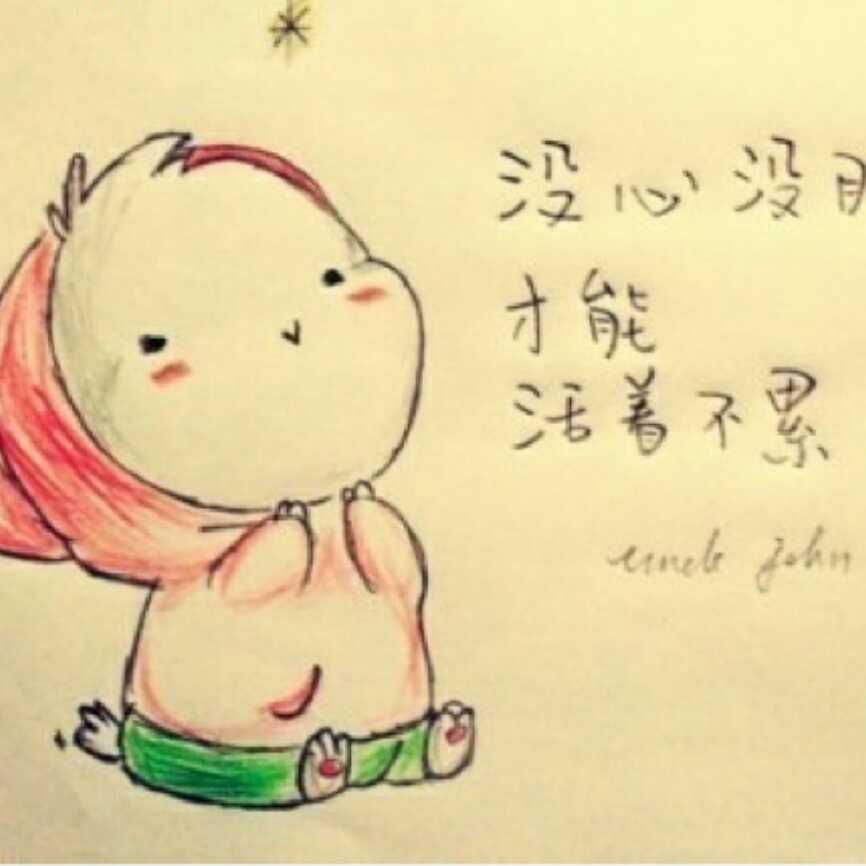 没心没
才能
活着不累
uncle John